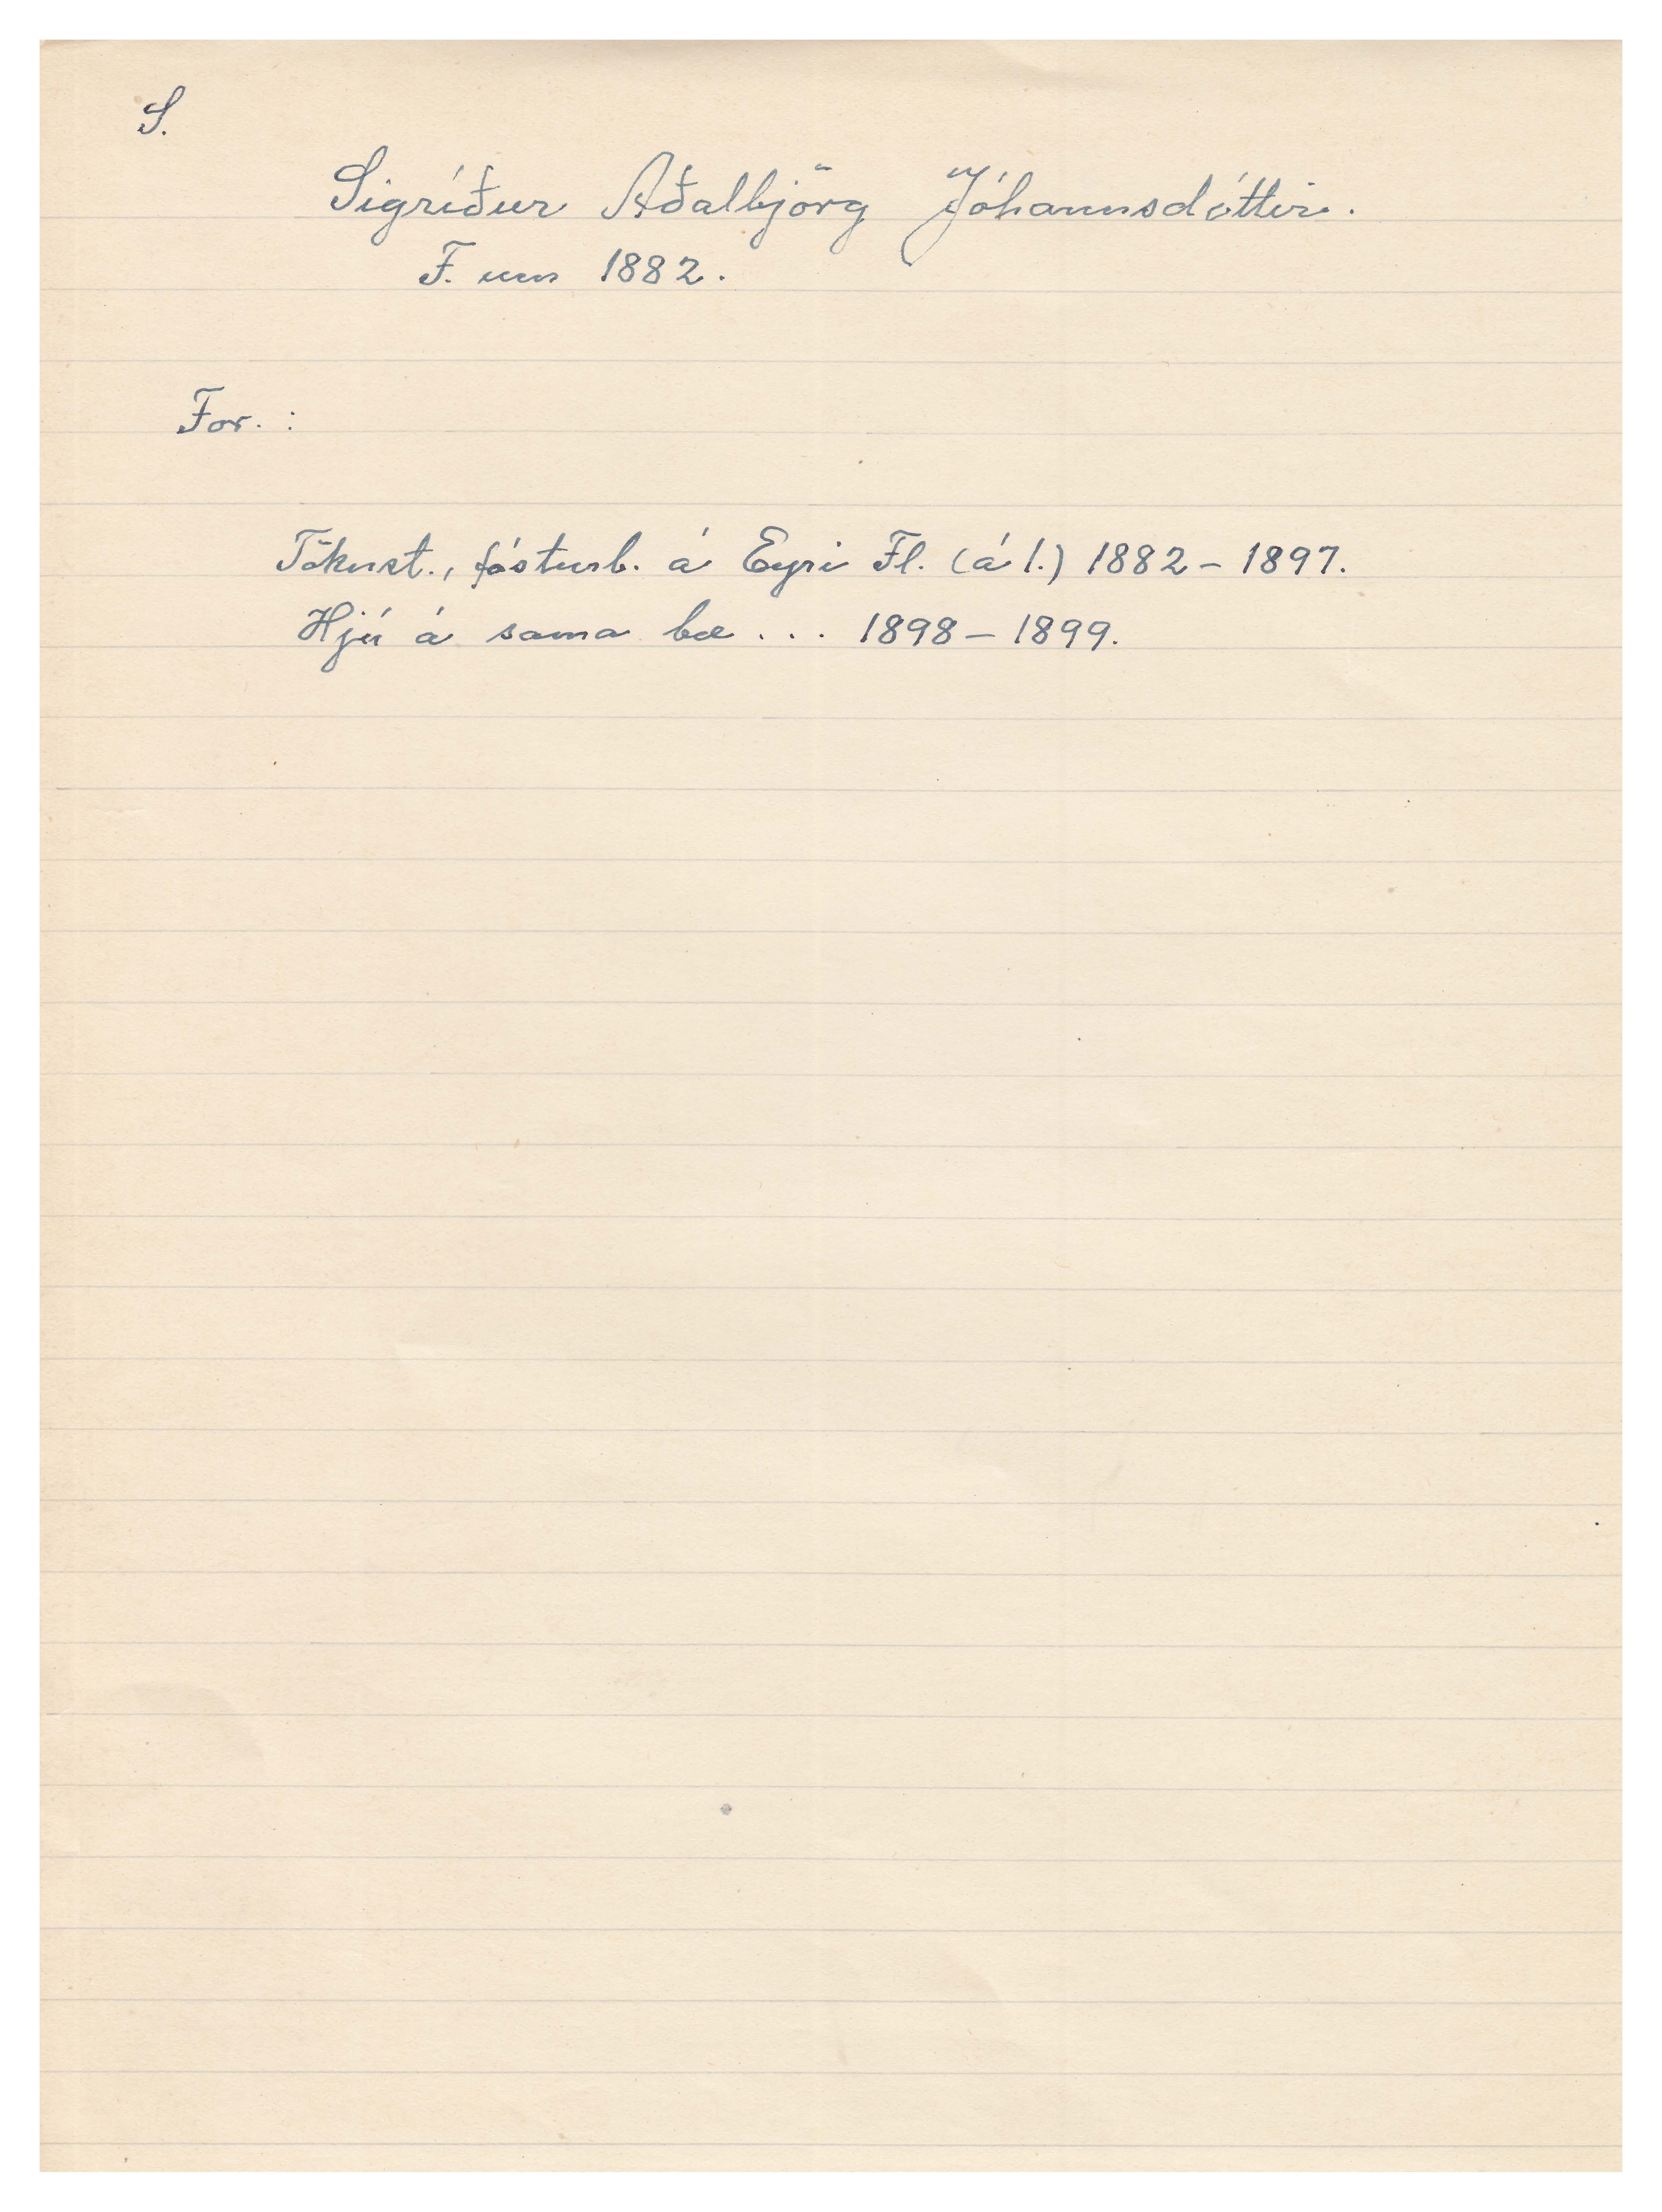 S.
Sigríður Aðalbjörg Jóhannsdóttir.
F. um 1882.
For. :
Tökust., fósturb. á Eyri Fl. (á 1.) 1882 – 1897.
Hjú á sama bæ . . . 1898 – 1899.